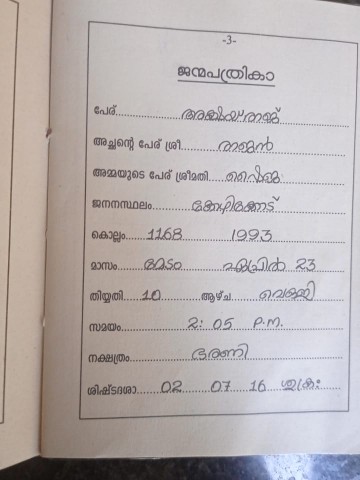 -3-
ജന്മപത്രികാ
പേര്.
അച്ഛന്റെ പേര് ശ്രീ. രാജൻ
അമ്മയുടെ പേര് ശ്രീമതി. ഷൈജ
ജനനസ്ഥലം. കോഴിക്കോട്
കൊല്ലം. 1168 1993
മാസം മേടം ഏപ്രിൽ 23
തിയ്യതി 10 ആഴ്ച വെള്ളി
സമയം 2: 05 P.M.
നക്ഷത്രം ഭരണി
ശിഷ്ടദശാ 02 07 16 ശുക്രഃ